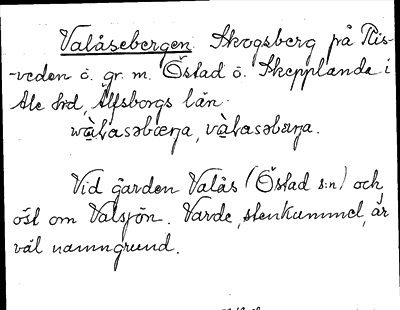 Valåsebergen. Skogsberg på Ris-
-veden ö. gr. m. Östad ö. Skepplanda i
Ale hrd, Älfsborgs län.
Vid gården Valås (Östad s:n) och
öst om Valsjön. Varde, stenkummel, är
väl namngrund.